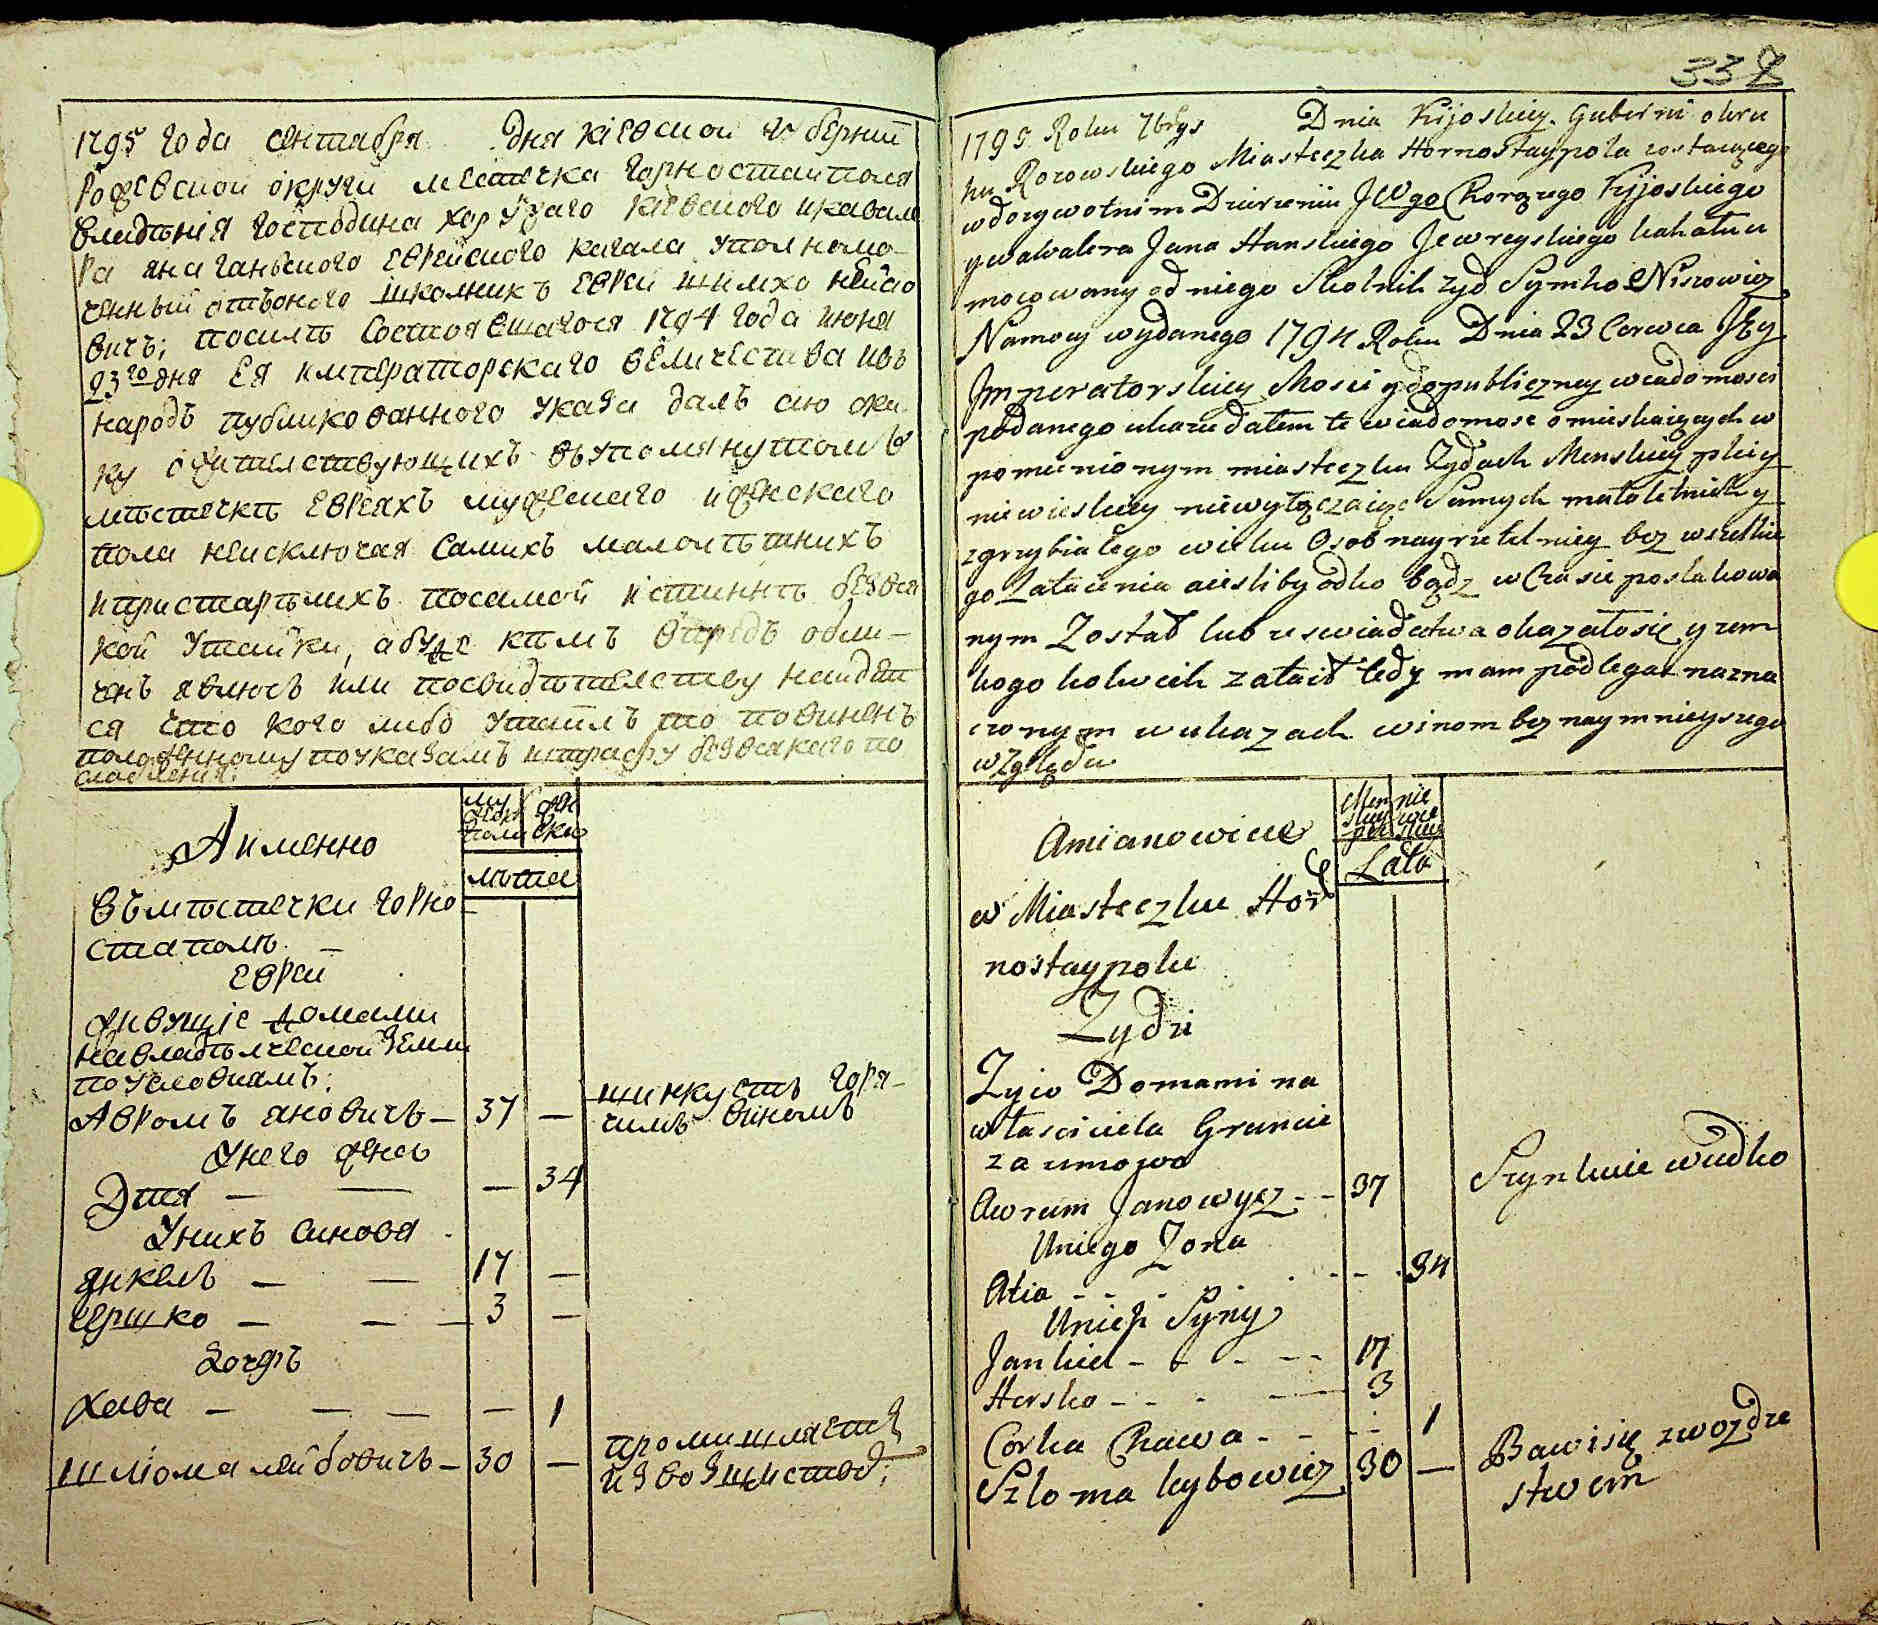 1795 года сентября дня киевской губернии
Рожевской округи местечка горностаиполя
владѣнія господина хорунжаго киевского и кавале
ра яна ганьского еврейского кагала уполномо
ченный отъоного школникъ еврей шимхо нейсо
вичъ; посилѣ состоявшагося 1794 года июня
23го дня Ея императорскаго величества ивъ
народъ публикованного указа далъ сию ска
ку о жителствующихъ въ упомянутомъ
мѣстечкѣ евреяхъ мужескаго и женскаго
пола неисключая самихъ малолѣтнихъ
ипристарѣлихъ посамой истиннѣ безвся
кой утайки, а буде кѣмъ впредъ обли-
ченъ явлюсъ или посвидѣтелству найдет
ся что кого либо утаилъ то повиненъ
положенному поуказамъ штрафу безвсякаго по
слабления:
Аименно
муже пола
жен ски
лѣта
Въмѣстечки горно
стаполѣ
евреи
живущіе домами
навладѣлческой земли
поусловиямъ:
Авромъ яновичъ — 37 — шинкуетъ горя-
чимъ виномъ
Унего жена
Этя — — — 34
Унихъ синовя
янкель — — 17 —
гершко — — — 3 —
Дочъ
хава — — — — 1
шліома лейбовичъ — 30 — промишляетъ
извозщиством;
338
1795 Roku 7brys Dnia Kijoskiey Guberni okru
hu Rozowskiego Miasteczka Hornostaypola zostaiącego
w dozywotnim Dzierzeniu JWgo Chorązego Kyjoskiego
y kawalera Jana Hanskiego Jewreyskiego kahału u
mocowany od niego Skolnik zyd Symho Nisowicz
Namocy wydanego 1794 Roku Dnia 23 Czerwca Jey
Imperatorskiey Mosci y do publiczney wiadomosci
podanego ukazu dałem te wiadomosc o mieskaiących w
pomienionym miasteczku Zydach Menskiey płci y
niewieskiey niewyłączaiąc Samych małoletnich y
zgrzybiałego wieku Osob nayrzetelniey bez wszelkie
go Zataienia aiesliby odko bądz w Czasie poslakowa
nym Został lub u swiadectwa okazałosię yzem
kogo kolwiek zataił tedy mam podlegac nazna
czonym w ukazach winom bez naymnieyszego
względu
Amianowicie
Men skiey płci
nie wie skiey
Lata
w Miasteczku Hor
nostaypolu
Zydzi
Zyio Domami na
własciciela Gruncie
za umowo
Awrum Janowycz - - 37 Szynkuie wudko
Uniego Zona
Atia - - - - - 34
Unich Syny
Jankiel - - - - 17
Hersko - - - - 3
Corka Chawa - - - 1
Szloma Leybowicz 30 — Bawisię zwozdze
stwem